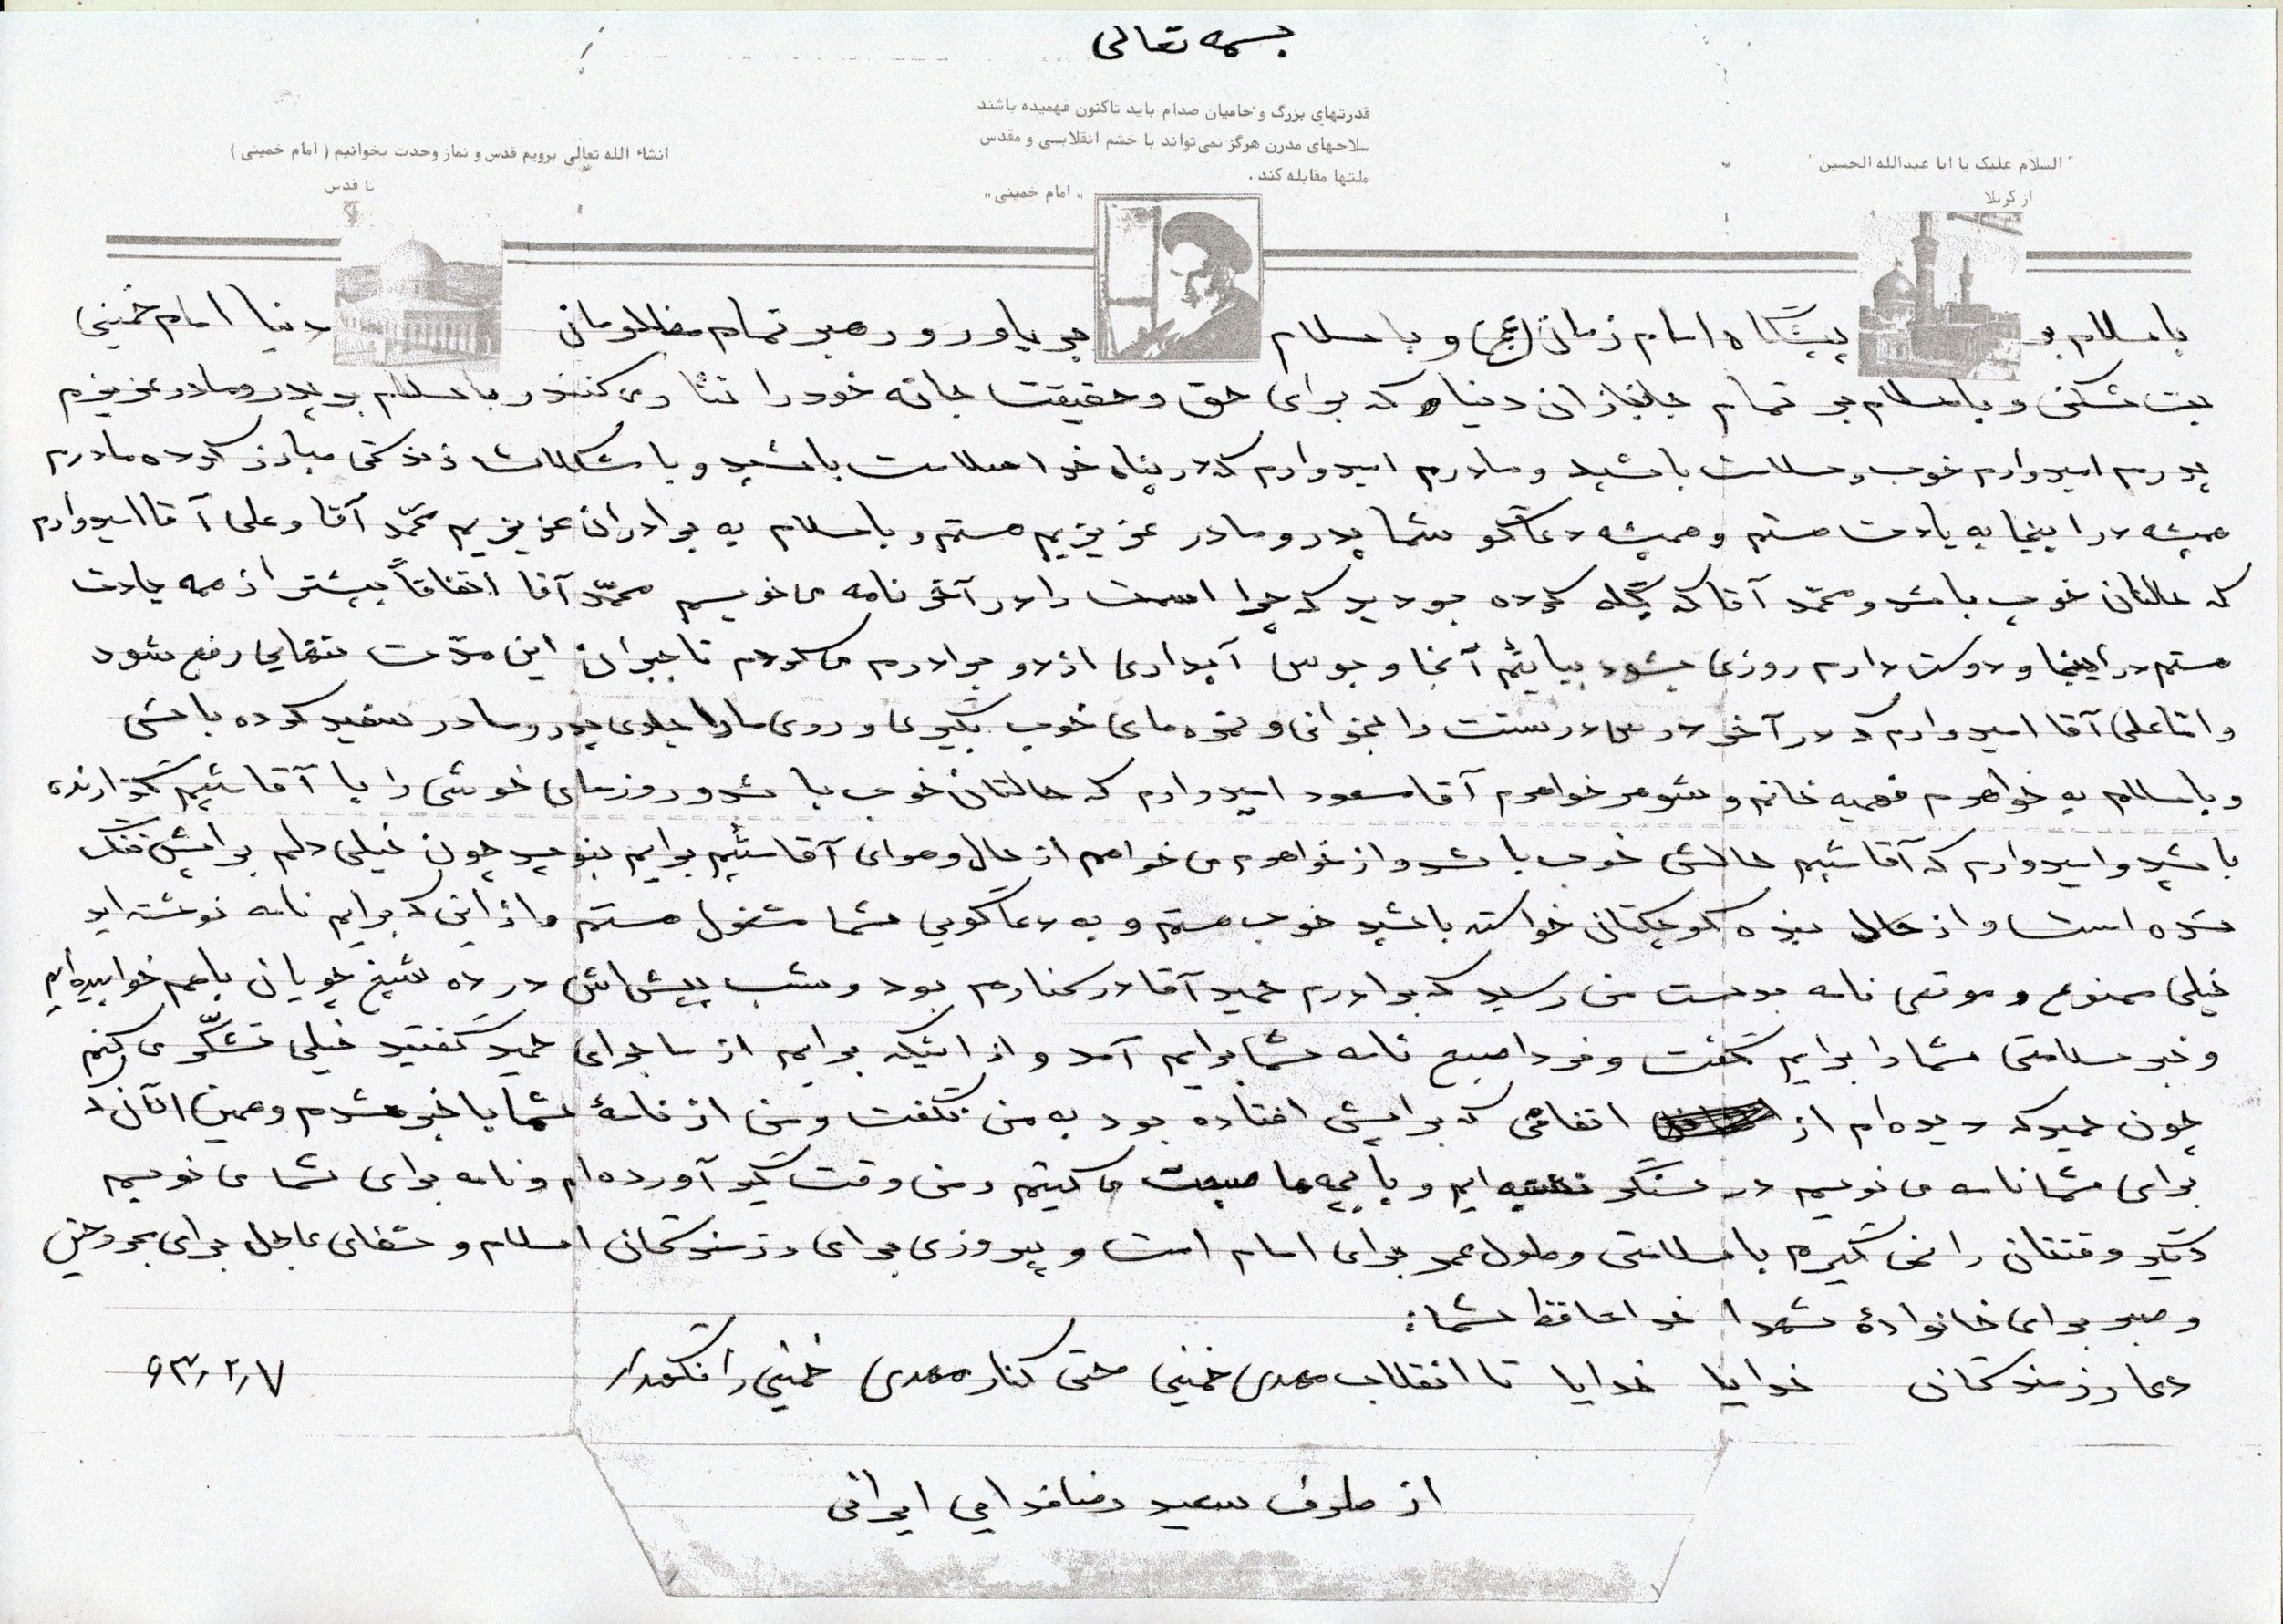 بسمه تعالی
قدرتهای بزرگ و حامیان صدام باید تاکنون فهمیده باشند
سلاحهای مدرن هرگز نمی‌تواند با خشم انقلابی و مقدس
ملتها مقابله کند .
" امام خمینی "
انشاء الله تعالی برویم قدس و نماز وحدت بخوانیم ( امام خمینی )
تا قدس
" السلام علیک یا ابا عبدالله الحسین "
از کربلا
با سلام بر پیشگاه امام زمان (عج) و با سلام بر یاور و رهبر تمام مظلومان دنیا امام خمینی
بت شکن و با سلام بر تمام جانبازان دنیا که برای حق و حقیقت جان خود را می‌کنند و با سلام بر پدر و مادر عزیزم
پدرم امیدوارم خوب و سلامت باشید و مادرم امیدوارم که در پناه خدا سلامت باشید و با مشکلات زندگی مبارز کرده مادرم
همیشه در اینجا به یادت هستم و همیشه دعاگو شما پدر و مادر عزیزیم هستم و با سلام به برادران عزیزیم محمّد آقا و علی آقا امیدوارم
که حالتان خوب باشد و محمّد آقا که گله کرده بودید که چرا اسمت را در آخر نامه می‌نویسم محمّد آقا اتفاقاً بیشتر از همه یادت
هستم در اینجا و دوست دارم روزی بشود بیایم آنجا و بوس آبداری از دو برادرم می‌کردم تا جبران این مدّت تنهایی رفع شود
و امّا علی آقا امیدوارم که در آخر درس درستت را بخوانی و نمره‌های خوب بگیری و روی ما را جلوی پدر و مادر سفید کرده باشی
و با سلام به خواهرم فهمیه خانم و شوهر خواهرم آقا مسعود امیدوارم که حالتان خوب باشد و روزهای خوشی را با آقا میثم گذرانده
باشید و امیدوارم که آقا میثم حالش خوب باشد و از خواهرم می‌خواهم از حال و هوای آقا میثم برایم بنویسد چون خیلی دلم برایش تنگ
شده است و از حال بنده کوچکتان خواسته باشید خوب هستم و به دعاگویی شما مشغول هستم و از این که برایم نامه نوشته‌اید
خیلی ممنوع و موقعی نامه بدست من رسید که برادرم حمید آقا در کنارم بود و شب پیش‌اش در ده شیخ چوپان با هم خوابیده‌ایم
و خبر سلامتی شما را برایم گفت و فردا صبح نامه شما برایم آمد و از اینکه برایم از ماجرای حمید گفتید خیلی تشکّر می‌کنم
چون حمید که دیده‌ام از اتفاقی که برایش افتاده بود به من نگفت و من از نامهٔ شما با خبر شدم و همین الآن که
برای شما نامه می‌نویسم در سنگر نشسته‌ایم و با بچه‌ها صحبت می‌کنیم و من وقت گیر آورده‌ام و نامه برای شما می‌نویسم
دیگر وقتتان را نمی‌گیرم با سلامتی و طول عمر برای امام امت و پیروزی برای رزمندگان اسلام و شفای عاجل برای مجروحین
و صبر برای خانوادهٔ شهدا خدا حافظ شما:
دعا رزمندگان خدایا خدایا تا انقلاب مهدی خمینی حتی کنار مهدی خمینی را نگهدار ۶۳٫۲٫۷
از طرف سعید رضا فدایی ایرانی